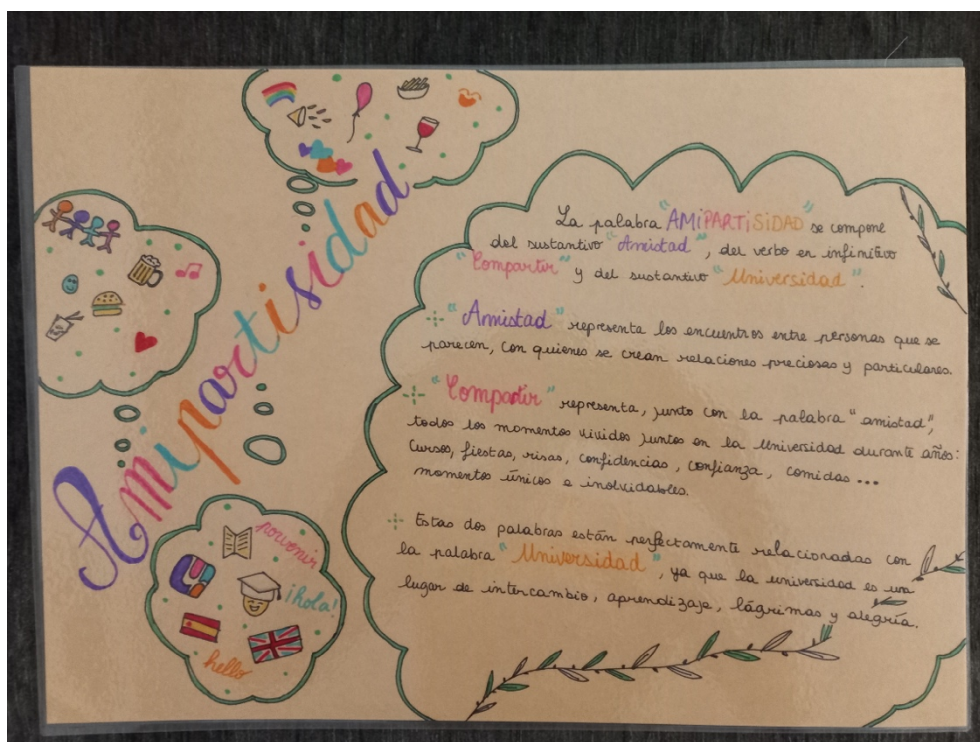 Amipartisidad
La palabra "AMiPARTiSiDAD" se compone
del sustantivo "Amistad", del verbo en infinitivo
"Compartir" y del sustantivo "Universidad".
"Amistad" representa los encuentros entre personas que se
parecen, con quienes se crean relaciones preciosas y particulares.
"Compartir" representa, junto con la palabra "amistad",
todos los momentos vividos juntos en la Universidad durante años:
Cursos, fiestas, risas, confidencias, confianza, comidas ...
momentos únicos e inolvidables.
Estas dos palabras están perfectamente relacionadas con
la palabra "Universidad", ya que la universidad es una
lugar de intercambio, aprendizaje, lágrimas y alegría.
porvenir
¡hola!
hello